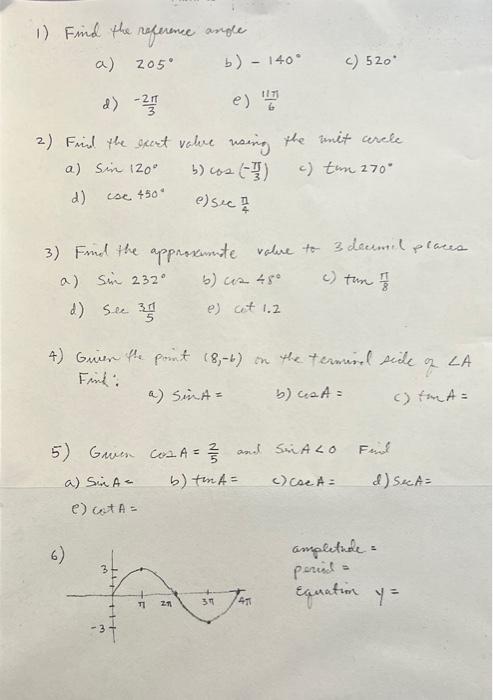 1) Find the reference angle
a) 205° b) - 140° c) 520°
d) -2π/3 e) 11π/6
2) Find the exact value using the unit circle
a) Sin 120° b) cos (-π/3) c) tan 270°
d) csc 450° e) sec π/4
3) Find the approximate value to 3 decimal places
a) Sin 232° b) cos 48° c) tan π/8
d) Sec 3π/5 e) cot 1.2
4) Given the point (8,-6) on the terminal side of ∠A
Find:
a) Sin A = b) cos A = c) tan A =
5) Given cos A = 2/5 and Sin A < 0 Find
a) Sin A = b) tan A = c) csc A = d) Sec A =
e) cot A =
6) amplitude =
3 period =
π 2π 3π 4π Equation y =
-3